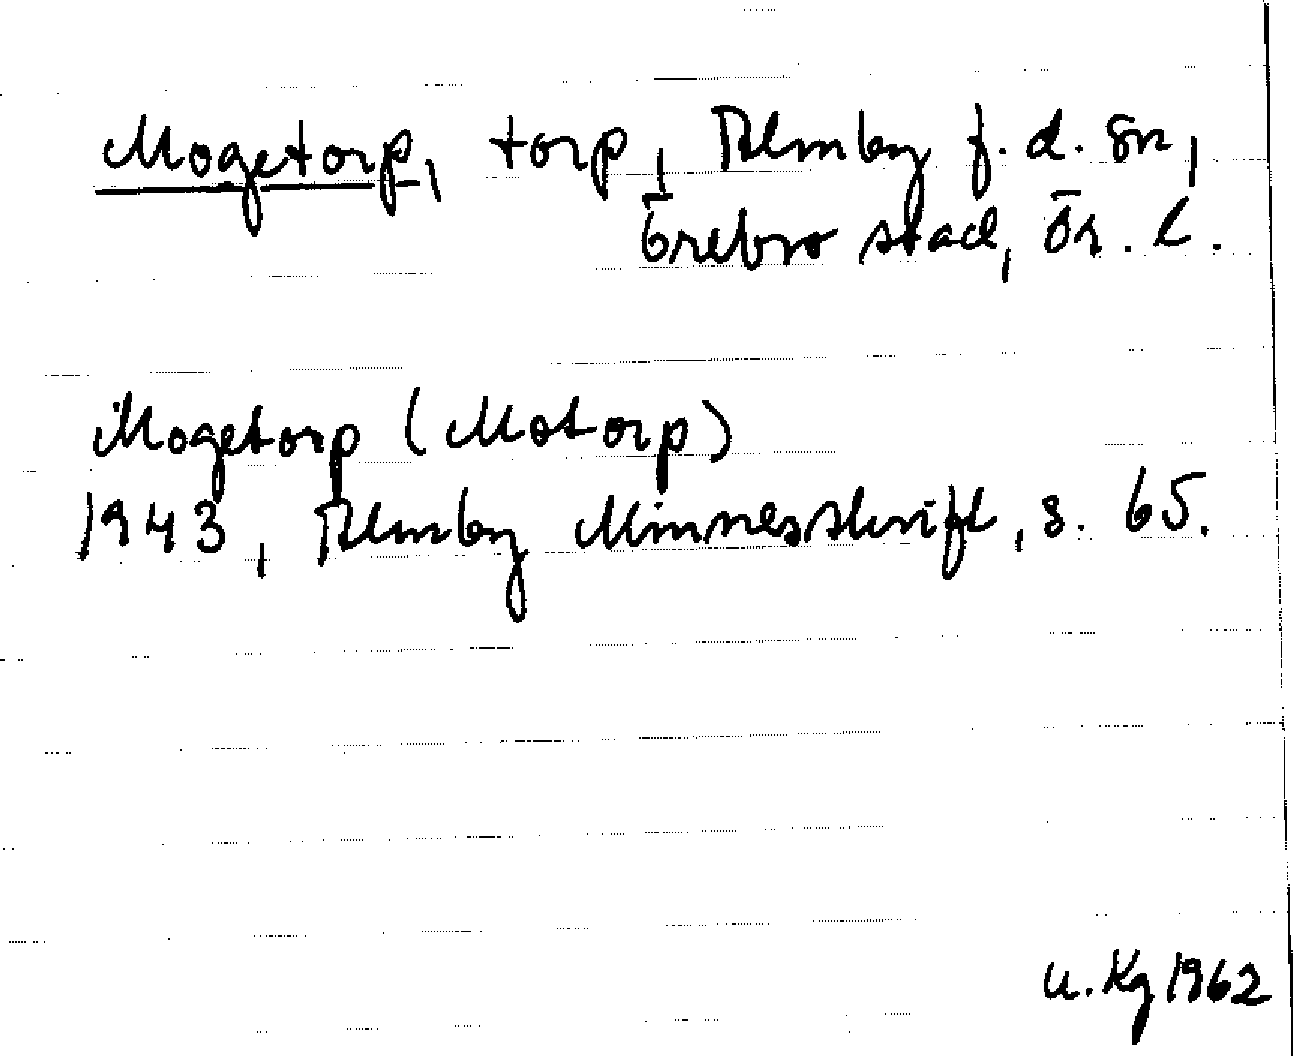 Mogetorp, torp, Almby f. d. sn,
Örebro stad, Ör. l.
Mogetorp (Motorp)
1943, Almby Minnesskrift, s. 65.
U. Kg 1962